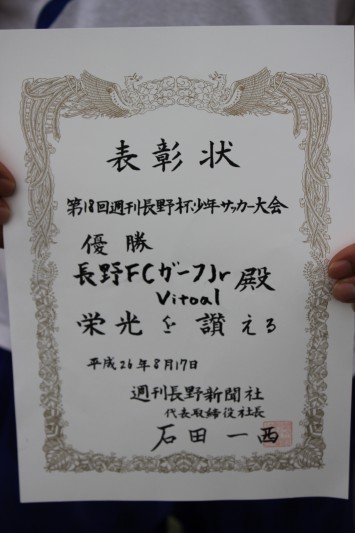 表彰状
第18回週刊長野杯少年サッカー大会
優勝
長野FCガーフJr殿
Vitoal
栄光を讃える
平成26年8月17日
週刊長野新聞社
代表取締役社長
石田一西